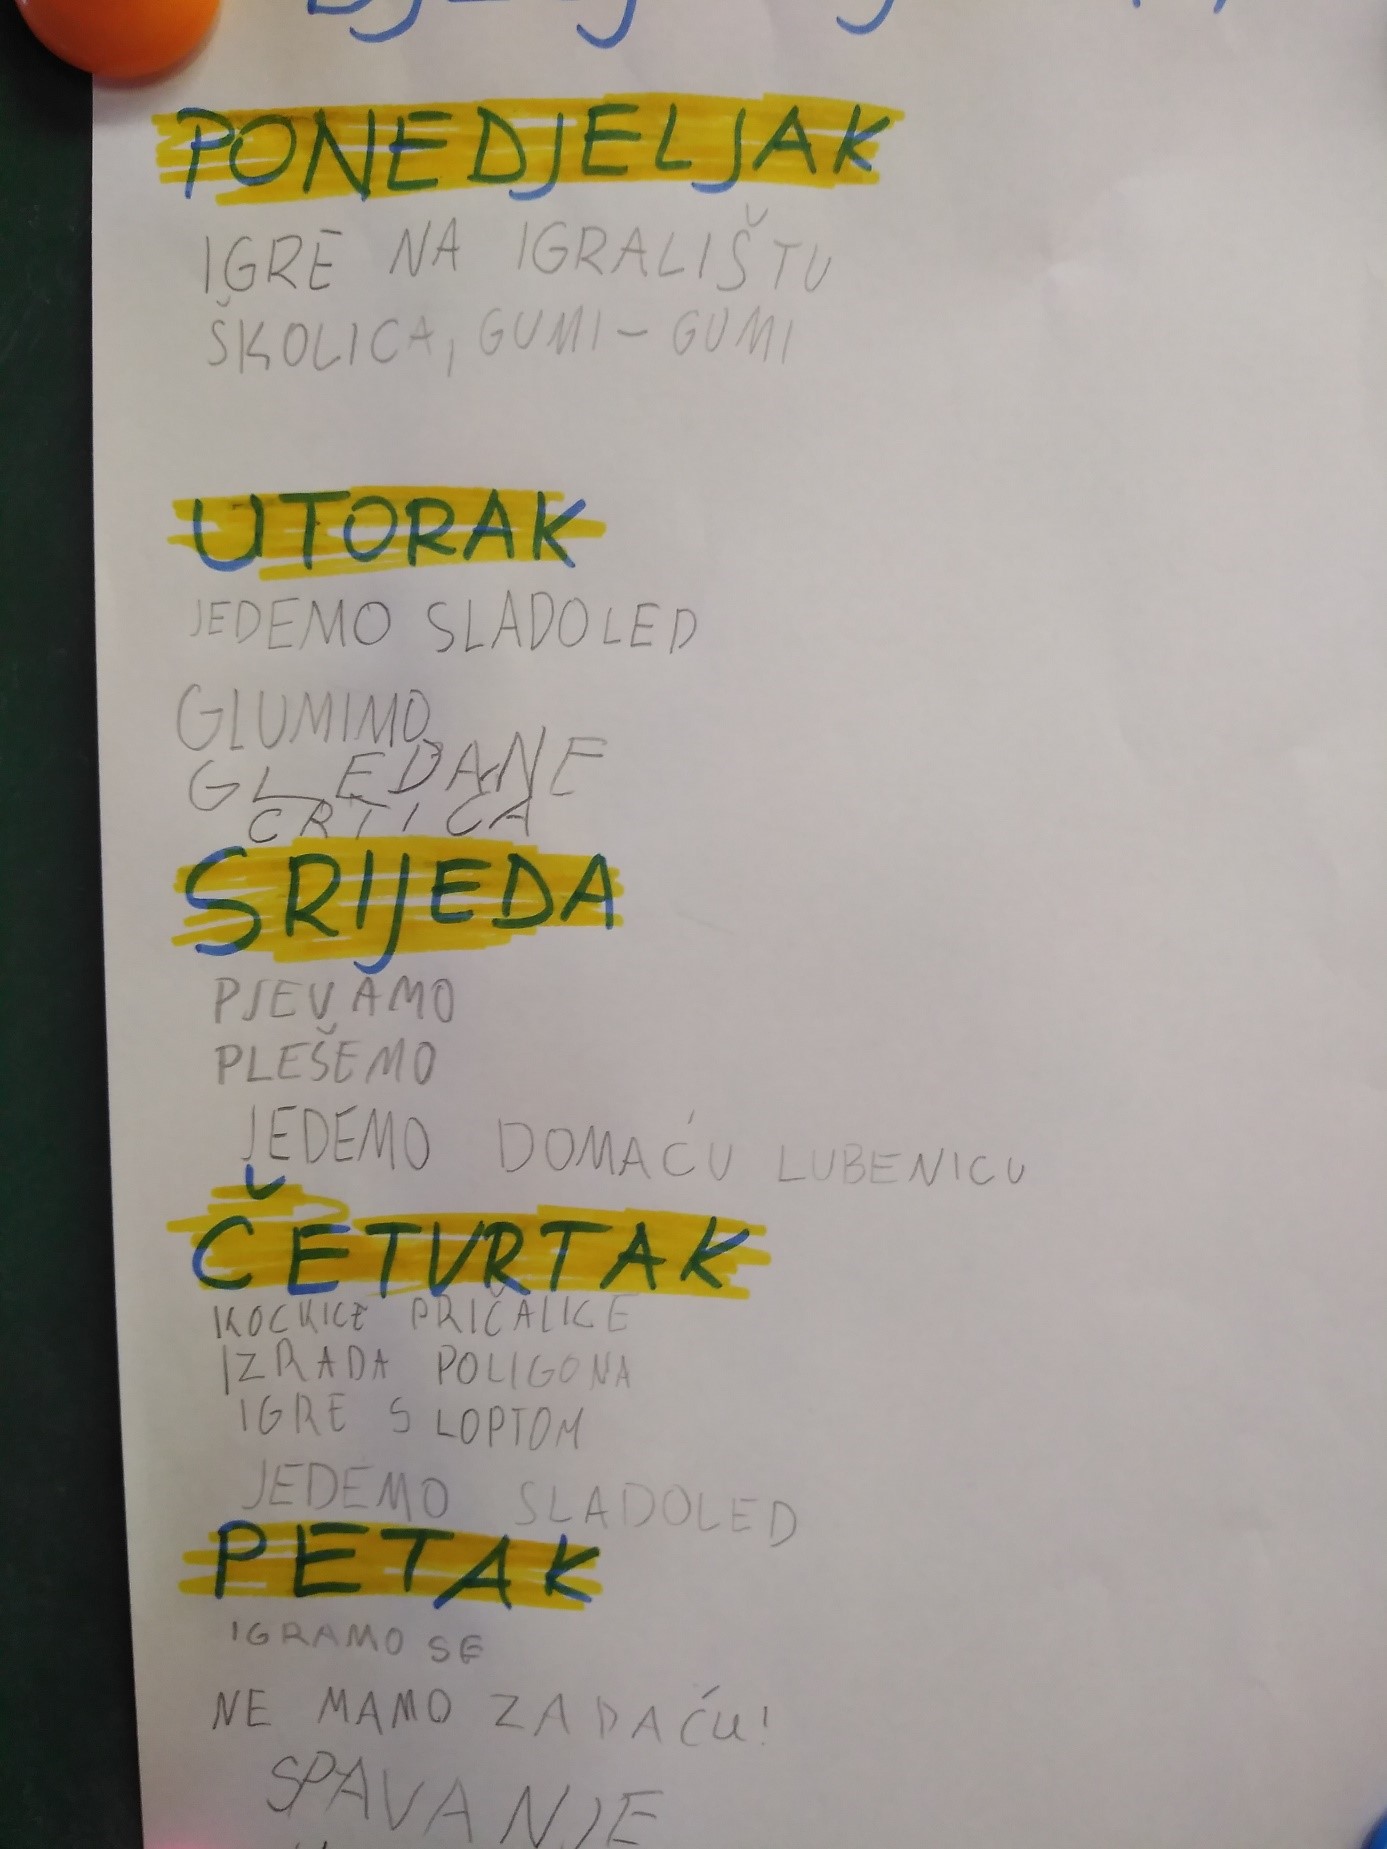 PONEDJELJAK
IGRE NA IGRALIŠTU
ŠKOLICA, GUMI-GUMI
UTORAK
JEDEMO SLADOLED
GLUMIMO
GLEDANE
CRTICA
SRIJEDA
PJEVAMO
PLEŠEMO
JEDEMO DOMAĆU LUBENICU
ČETVRTAK
KOCKICE PRIČALICE
IZRADA POLIGONA
IGRE S LOPTOM
JEDEMO SLADOLED
PETAK
IGRAMO SE
NE MAMO ZADAĆU!
SPAVANJE